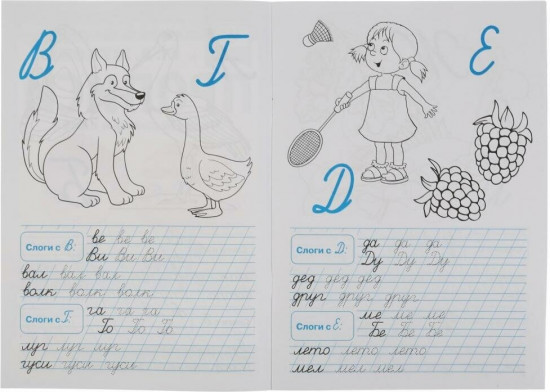 В Г
Слоги с В:
ве ве ве
Ви Ви Ви
вал вал вал
волк волк волк
Слоги с Г:
га га га
Го Го Го
луг луг луг
гуси гуси гуси
Е
Д
Слоги с Д:
да да да
Ду Ду Ду
дед дед дед
друг друг друг
Слоги с Е:
ме ме ме
Бе Бе Бе
лето лето лето
мел мел мел